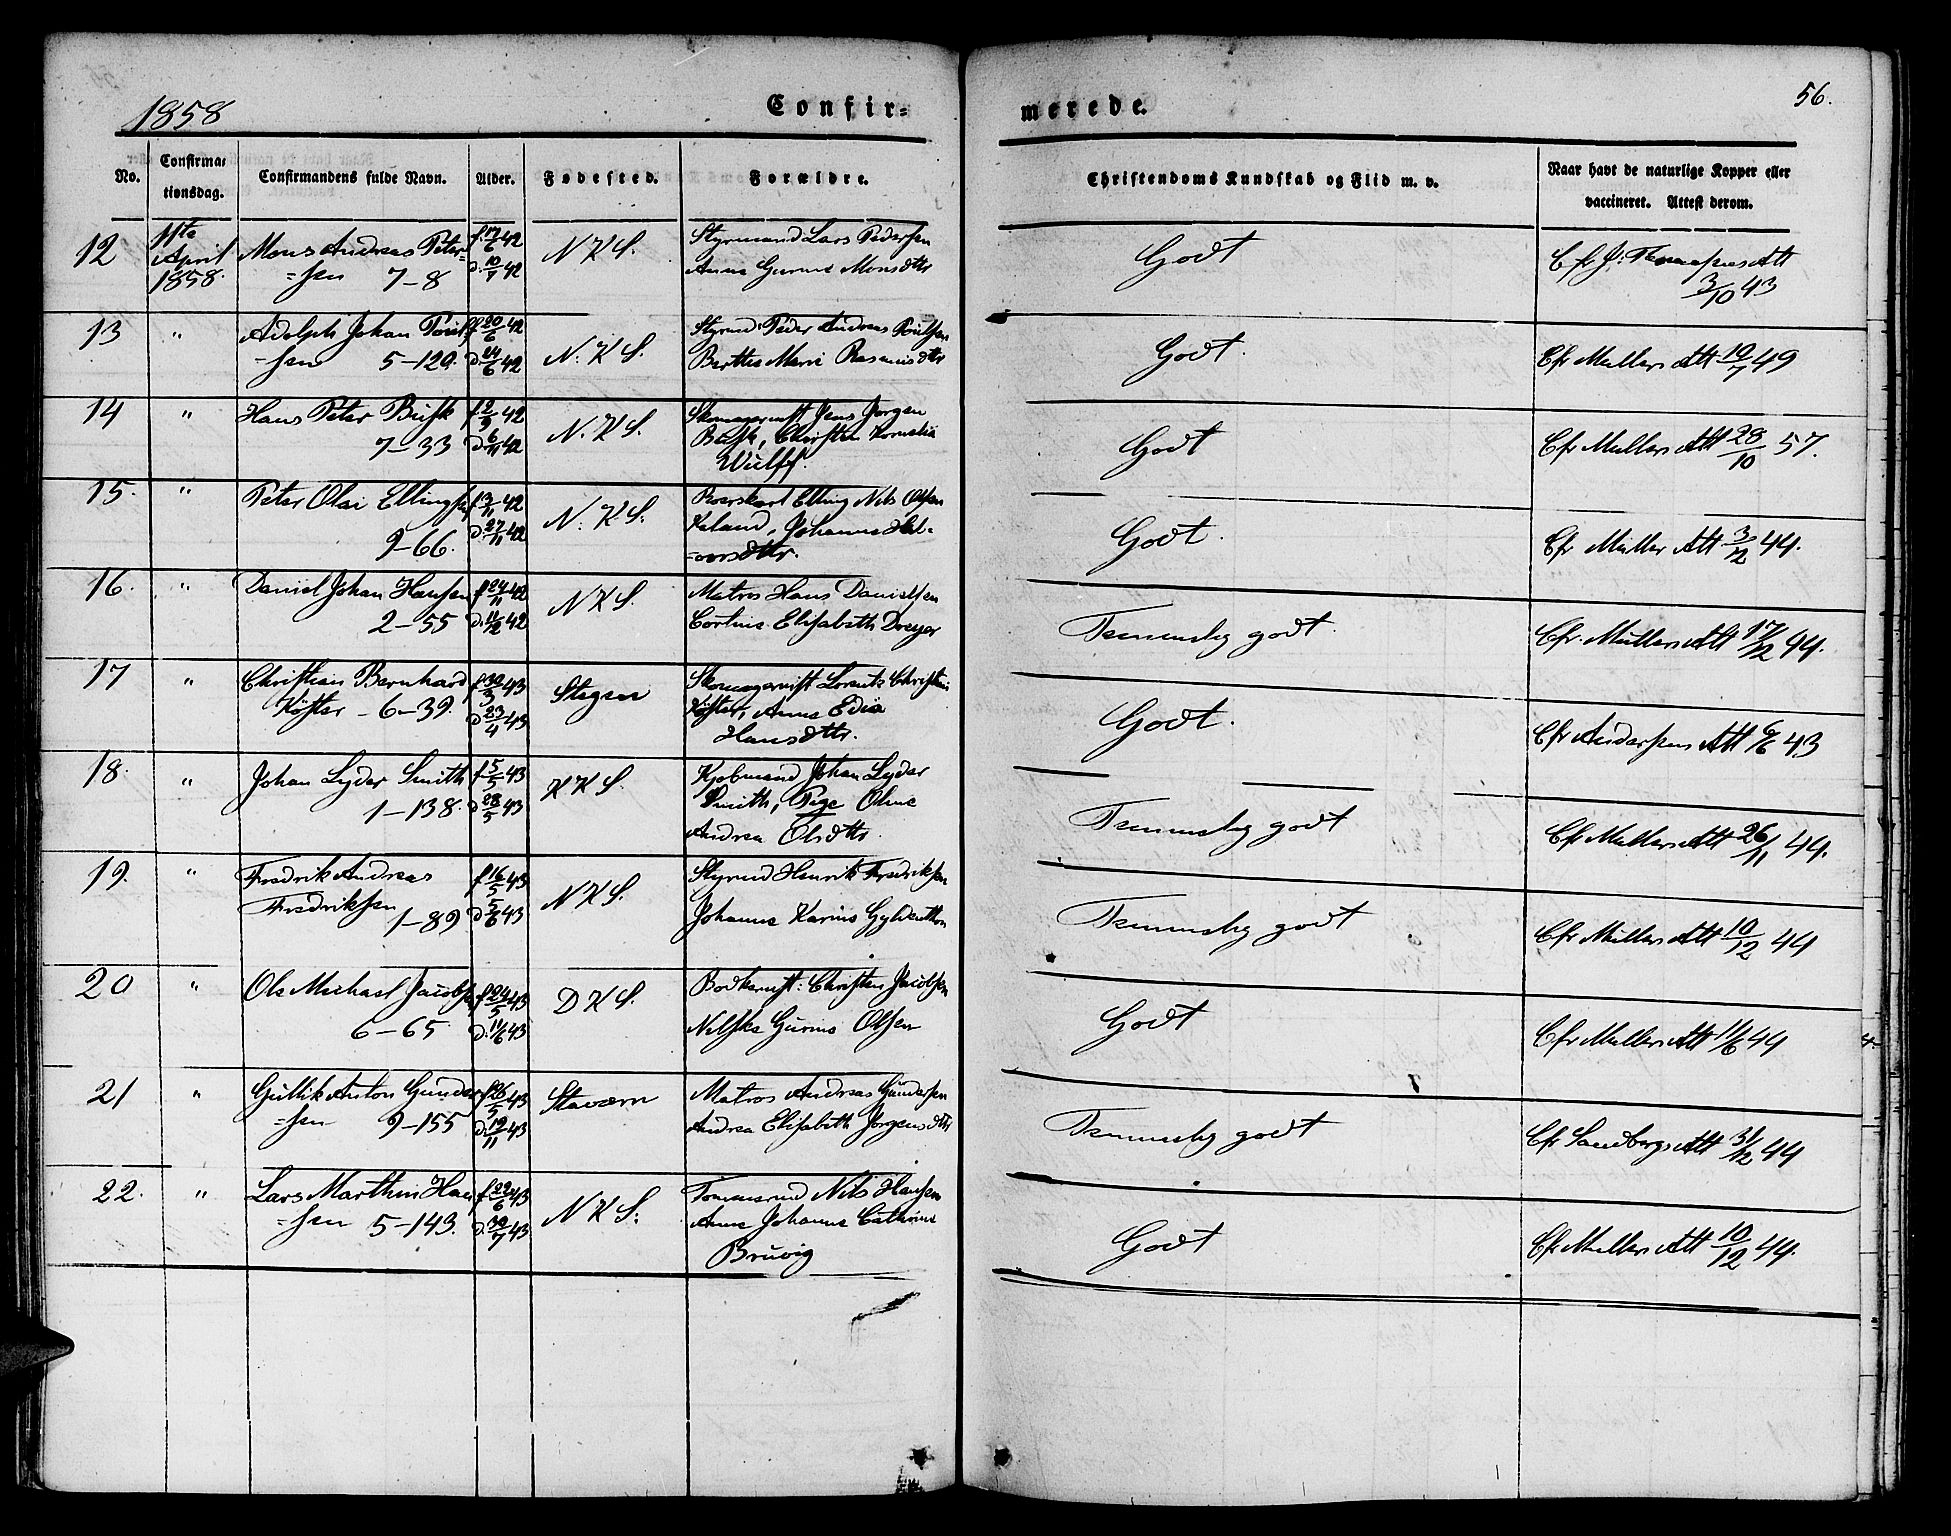 1858
Confir-
merede.
56.
No.
Confirma-
tionsdag.
Confirmandens fulde Navn.
Alder.
Fødested.
Forældre.
Christendoms Kundskab og Flid m. v.
Naar havt de naturlige Kopper eller
vaccineret. Attest derom.
12
11te
April
1858.
Mons Andreas Peter=
=sen 7-8
f. 17/6 42
d. 10/7 42
N K S.
Styrmand Lars Pedersen
Anne Gurine Monsdttr
Godt
Cfr J: Att
3/10 43
13
"
Adolph Johan Poul
=sen 5-120.
f 20/6 42
d. 24/6 42
N. K S.
Styrmd: Peder Andreas Poulsen
Berthe Marie Rasmusdttr
Godt.
Cfr Mullers Att 10/7 49
14
"
Hans Peter Busk
7-33
f 2/9 42
d 6/11 42
N. K S.
Skomagermst Jens Jørgen
Busk, Christen Kornelia
Wulff.
Godt
Cfr Mullers Att 28/10 57.
15.
"
Peter Olai Ellingsen
9-66.
f 3/11 42
d. 27/11 42
N: K S:
Elling Nils Olsen
Haland, Johanne Hal-
=vorsdttr.
Godt.
Cfr Müller Att 3/12 44.
16.
"
Daniel Johan Hansen
2-55
f 24/11 42
d. 11/12 42
N K S.
Matros Hans Danielsen
Cortine Elisabeth Dreyer
Temmelig godt.
Cfr. Müllers Att 17/12 44.
17
"
Christian Bernhard
Køster - 6-39.
f. 30/3 43
d 23/4 43
Stegen
Skomagermst Lorents Christian
Køster, Anne Edie
Hansdttr.
Godt.
Cfr Andersens Att 43
18.
"
Johan Lyder Smith
1-138.
f 5/5 43
d 28/5 43
K K S.
Kjøbmand Johan Lyder
Smith, Pige Oline
Andrea Olsdttr.
Temmelig godt
Cfr Mullers Att 26/11 44.
19.
"
Fredrik Andreas
Fredriksen
1-89
f 16/5 43
d. 5/6 43
N K S.
Styrmd Henrik Fredriksen
Johanne Karine Gyldenthon
Temmelig godt
Cfr Müllers Att 10/12 44
20
"
Ole Michael Jacobsen
6-65.
f 24/5 43
d. 11/6 43
D K S.
Bødkermst: Christen Jacobsen
Nilske Gurine Olsen
Godt
Cfr Mullers Att 11/6 44
21
"
Gullik Anton Gunder
=sen 9-155
f 26/5 43
d. 19/11 43
Staværn
Matros Andreas Gundersen
Andrea Elisabeth Jørgensdttr
Temmelig godt
Cfr Sandbergs Att 31/12 44
22.
"
Lars Marthin Han
=sen 5-143.
f 22/6 43
d. 30/7 43
N K S:
Tømmermd Nils Hansen
Anne Johanne Cathrine
Bruvig
Godt
Cfr Mullers Att 10/12 44.